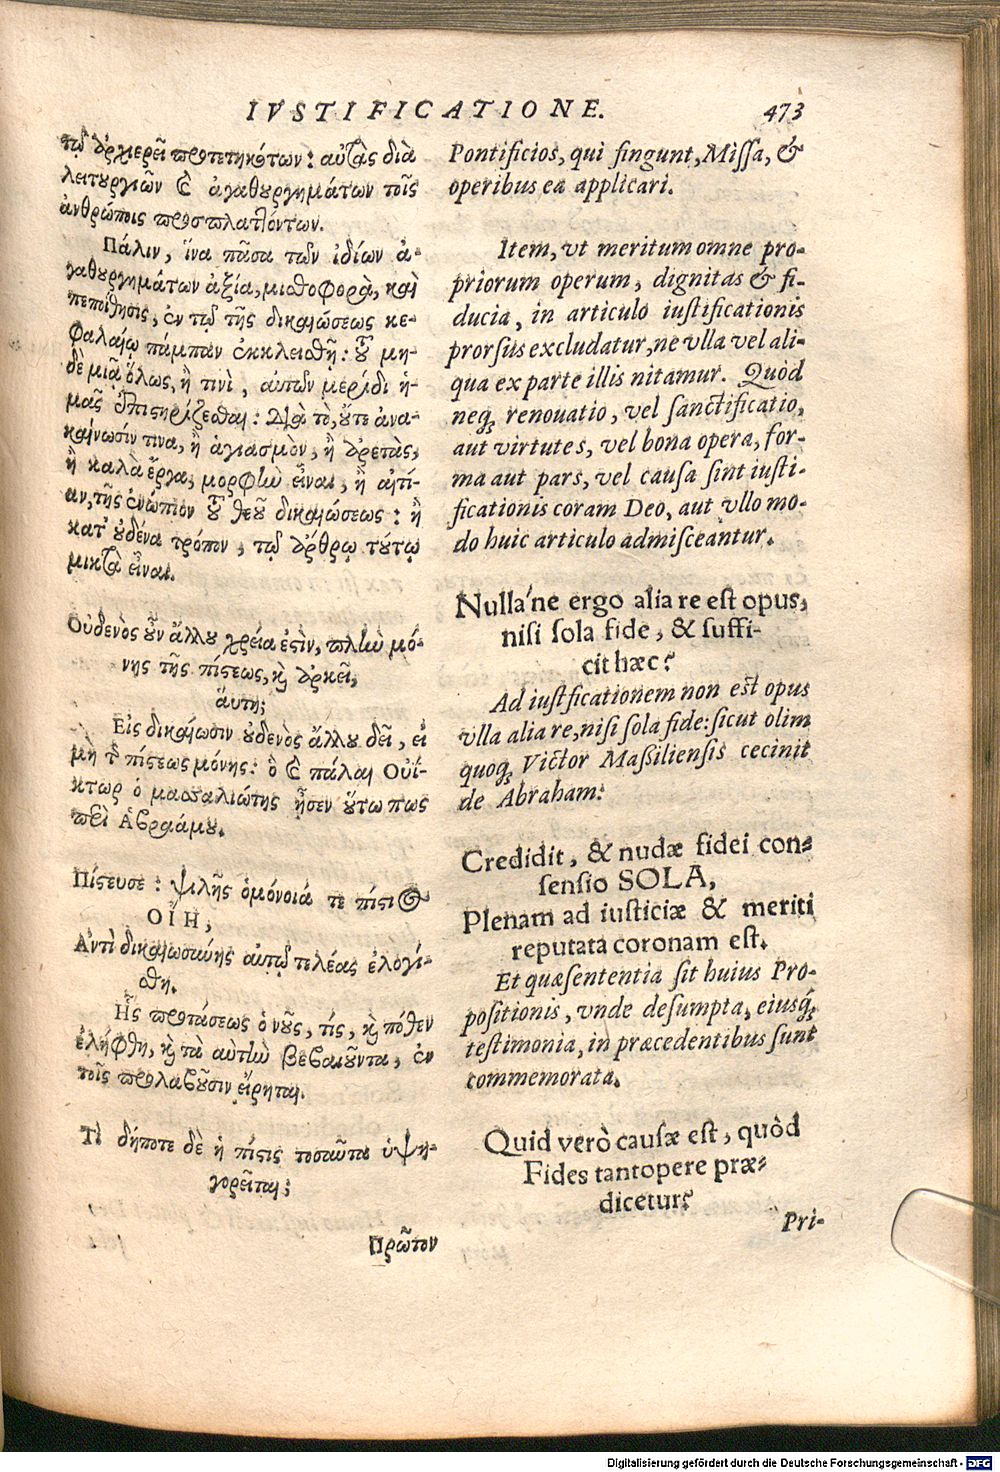 IVSTIFICATIONE. 473
τῷ ἀρχιερεῖ προτετηκότων: αὐτὰς διὰ
λειτουργιῶν καὶ ἀγαθουργημάτων τοῖς
ἀνθρώποις προσπλαττόντων.
Πάλιν, ἵνα πᾶσα τῶν ἰδίων ἀ-
γαθυργημάτων ἀξία, μισθοφορὰ, καὶ
πεποίθησις, ἐν τῷ τῆς δικαιώσεως κε-
φαλαίῳ πάμπαν ἐκκλεισθῇ: τοῦ μη-
δὲ μιᾷ ὅλως, ἢ τινὶ, αὐτῶν μερίδι ἡ-
μᾶς ἐπιστηρίζεσθαι: Διὰ τὸ, οὔτε ἀνα-
καίνωσίν τινα, ἢ ἁγιασμὸν, ἢ ἀρετὰς,
ἢ καλὰ ἔργα, μορφὴν εἶναι, ἢ αἰτί-
αν, τῆς ἐνώπιον τοῦ θεοῦ δικαιώσεως: ἢ
κατ' οὐδένα τρόπον, τῷ ἄρθρῳ τούτῳ
μικτὰ εἶναι.
Οὐδενὸς οὖν ἄλλου χρεία ἐστὶν, πλὴν μό-
νης τῆς πίστεως, καὶ ἀρκεῖ,
αὕτη;
Εἰς δικαίωσιν οὐδενὸς ἄλλου δεῖ, εἰ
μὴ τῆς πίστεως μόνης: ὃ καὶ πάλαι Οὐΐ-
κτωρ ὁ μασσαλιώτης ᾖσεν οὕτω πως
περὶ Ἀβραάμου.
Πίστευσε: ψιλῆς ὁμόνοιά τε πίστιος
ΟΙΗ,
Ἀντὶ δικαιωσύνης αὐτῷ τελέας ἐλογί-
σθη.
Ἧς προτάσεως ὁ νοῦς, τίς, καὶ πόθεν
ἐλήφθη, καὶ τὰ αὐτὴν βεβαιοῦντα, ἐν
τοῖς προλαβοῦσιν εἴρηται.
Τί δήποτε δὲ ἡ πίστις τοσαῦτα ὑψη-
γορεῖται;
Πρῶτον
Pontificios, qui fingunt, Missa, &
operibus ea applicari.
Item, vt meritum omne pro-
priorum operum, dignitas & fi-
ducia, in articulo iustificationis
prorsus excludatur, ne vlla vel ali-
qua ex parte illis nitamur. Quòd
neq; renouatio, vel sanctificatio,
aut virtutes, vel bona opera, for-
ma aut pars, vel causa sint iusti-
ficationis coram Deo, aut vllo mo-
do huic articulo admisceantur.
Nulla'ne ergo alia re est opus,
nisi sola fide, & suffi-
cit hæc?
Ad iustficationem non est opus
vlla alia re, nisi sola fide: sicut olim
quoq; Victor Massiliensis cecinit
de Abraham:
Credidit, & nudæ fidei con-
sensio SOLA,
Plenam ad iusticiæ & meriti
reputata coronam est.
Et quæ sententia sit huius Pro-
positionis, vnde desumpta, eiusq;
testimonia, in præcedentibus sunt
commemorata.
Quid verò causæ est, quòd
Fides tantopere præ-
dicetur?
Pri-
Digitalisierung gefördert durch die Deutsche Forschungsgemeinschaft - DFG